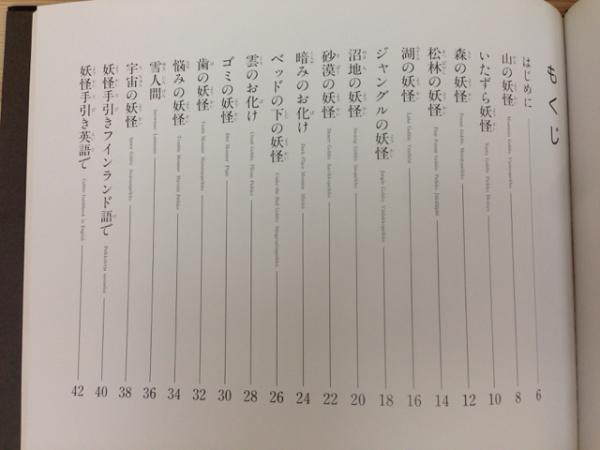 もくじ
はじめに 6
山の妖怪 Mountain Goblin 8
いたずら妖怪 10
森の妖怪 Forest Goblin 12
松林の妖怪 Pine Forest Goblin 14
湖の妖怪 Lake Goblin 16
ジャングルの妖怪 Jungle Goblin 18
沼地の妖怪 Swamp Goblin 20
砂漠の妖怪 Desert Goblin 22
暗みのお化け Dark Place Monster 24
ベッドの下の妖怪 Under the Bed Goblin 26
雲のお化け Cloud Goblin 28
ゴミの妖怪 30
歯の妖怪 Tooth Monster 32
悩みの妖怪 Trouble Monster 34
雪人間 Snowman 36
宇宙の妖怪 Space Goblin 38
妖怪手引きフィンランド語で 40
妖怪手引き英語で Goblin Guidebook in English 42